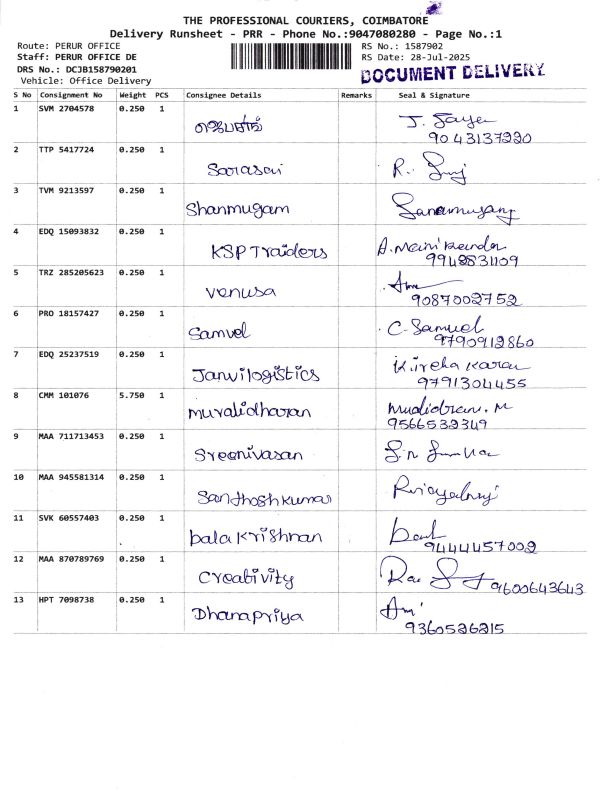 THE PROFESSIONAL COURIERS, COIMBATORE
Delivery Runsheet - PRR - Phone No.:9047080280 - Page No.:1
Route: PERUR OFFICE
Staff: PERUR OFFICE DE
DRS No.: DCJB158790201
Vehicle: Office Delivery
RS No.: 1587902
RS Date: 28-Jul-2025
DOCUMENT DELIVERY
S No Consignment No Weight PCS Consignee Details Remarks Seal & Signature
1 SVM 2704578 0.250 1 J.
9043137220
2 TTP 5417724 0.250 1 Sarasai R.
3 TVM 9213597 0.250 1 Shanmugam
4 EDQ 15093832 0.250 1 KSP Traiders A. Manikandan
9948831109
5 TRZ 285205623 0.250 1 venusa
9087002752
6 PRO 18157427 0.250 1 Samuel C. Samuel
9790912860
7 EDQ 25237519 0.250 1 Janvilogistics
9791304455
8 CMM 101076 5.750 1 muralidharan M
9566532349
9 MAA 711713453 0.250 1 Sreenivasan
10 MAA 945581314 0.250 1 Santhoshkumar
11 SVK 60557403 0.250 1 balakrishnan
9444457002
12 MAA 870789769 0.250 1 Creativity
9600643643
13 HPT 7098738 0.250 1 Dhanapriya
9360526215